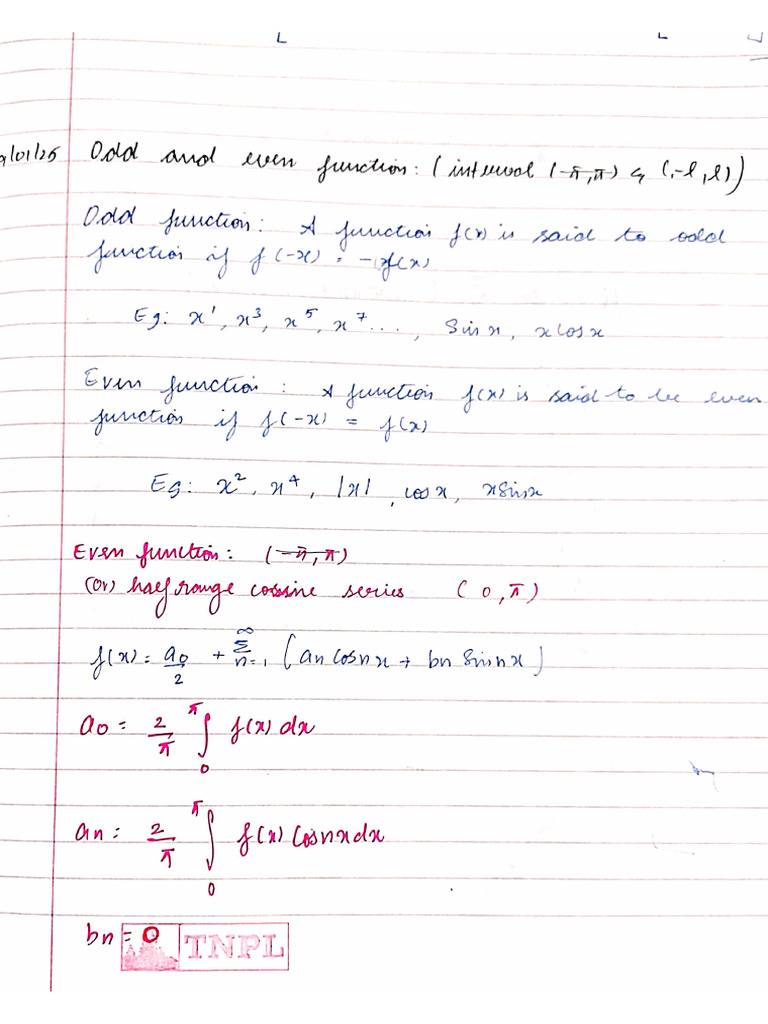 L L
/01/25 Odd and even function: (interval (-π,π) & (-l,l))
Odd function: A function f(x) is said to odd
function if f(-x) = -f(x)
Eg: x¹, x³, x⁵, x⁷..., Sin x, x Cos x
Even function: A function f(x) is said to be even
function if f(-x) = f(x)
Eg: x², x⁴, |x|, cos x, x Sin x
Even function: (-π,π)
(Or) half range cosine series (0,π)
f(x) = a0/2 + ∞ Σ n=1 (an Cos nx + bn Sin nx)
a0 = 2/π ∫₀^π f(x) dx
an = 2/π ∫₀^π f(x) Cos nx dx
bn = 0 TNPL